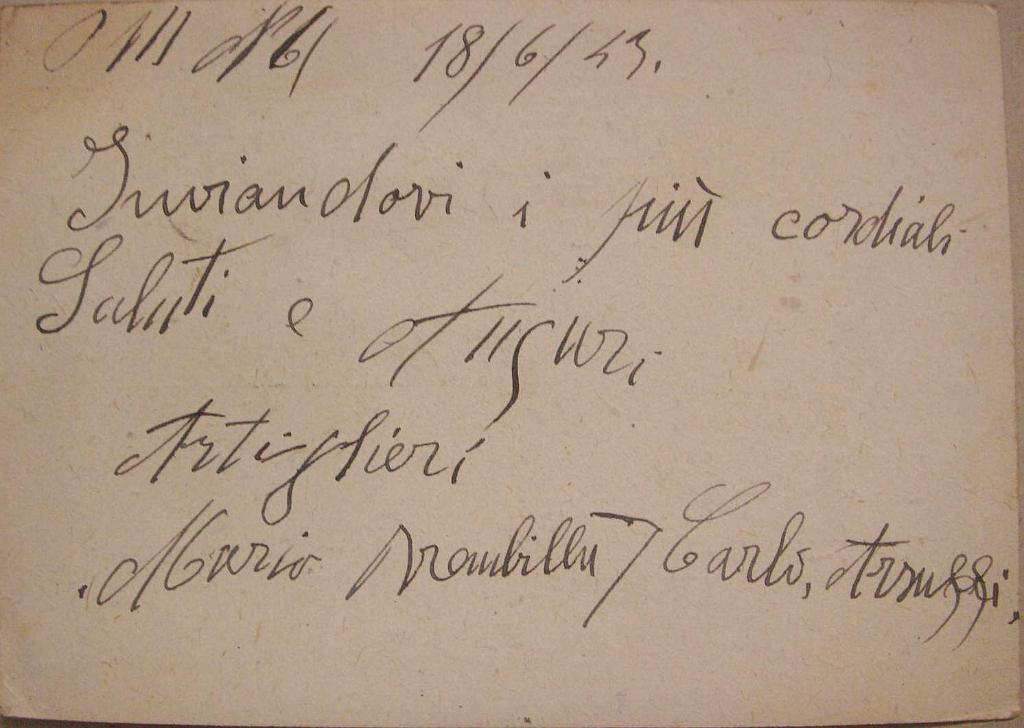 18/6/43.
Inviandovi i più cordiali
Saluti e Auguri
Artiglieri
Mario Brambilla Carlo,